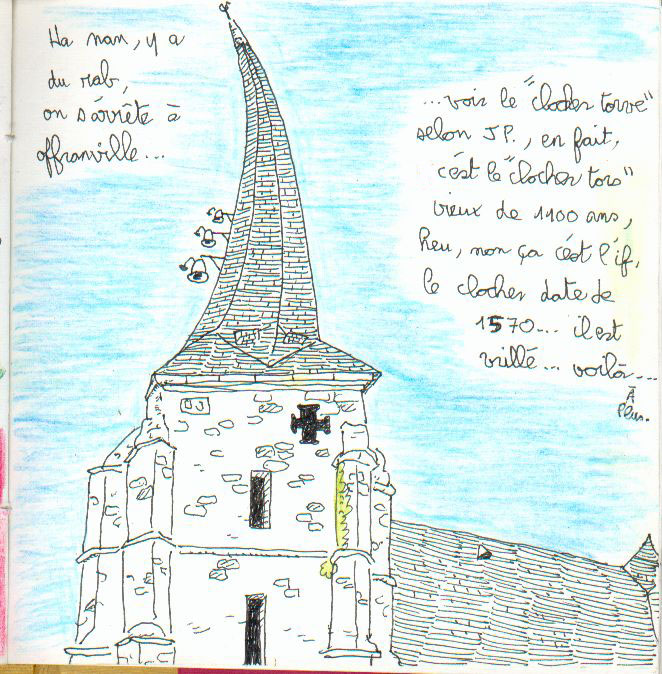 Ha nan, y a
du rab,
on s'arrête à
offranville...
...voir le "clocher torve"
selon J.P., en fait,
c'est le "clocher tors"
vieux de 1100 ans,
heu, non ça c'est l'if,
le clocher date de
1570... il est
vrillé... voilà...
À
Plus.